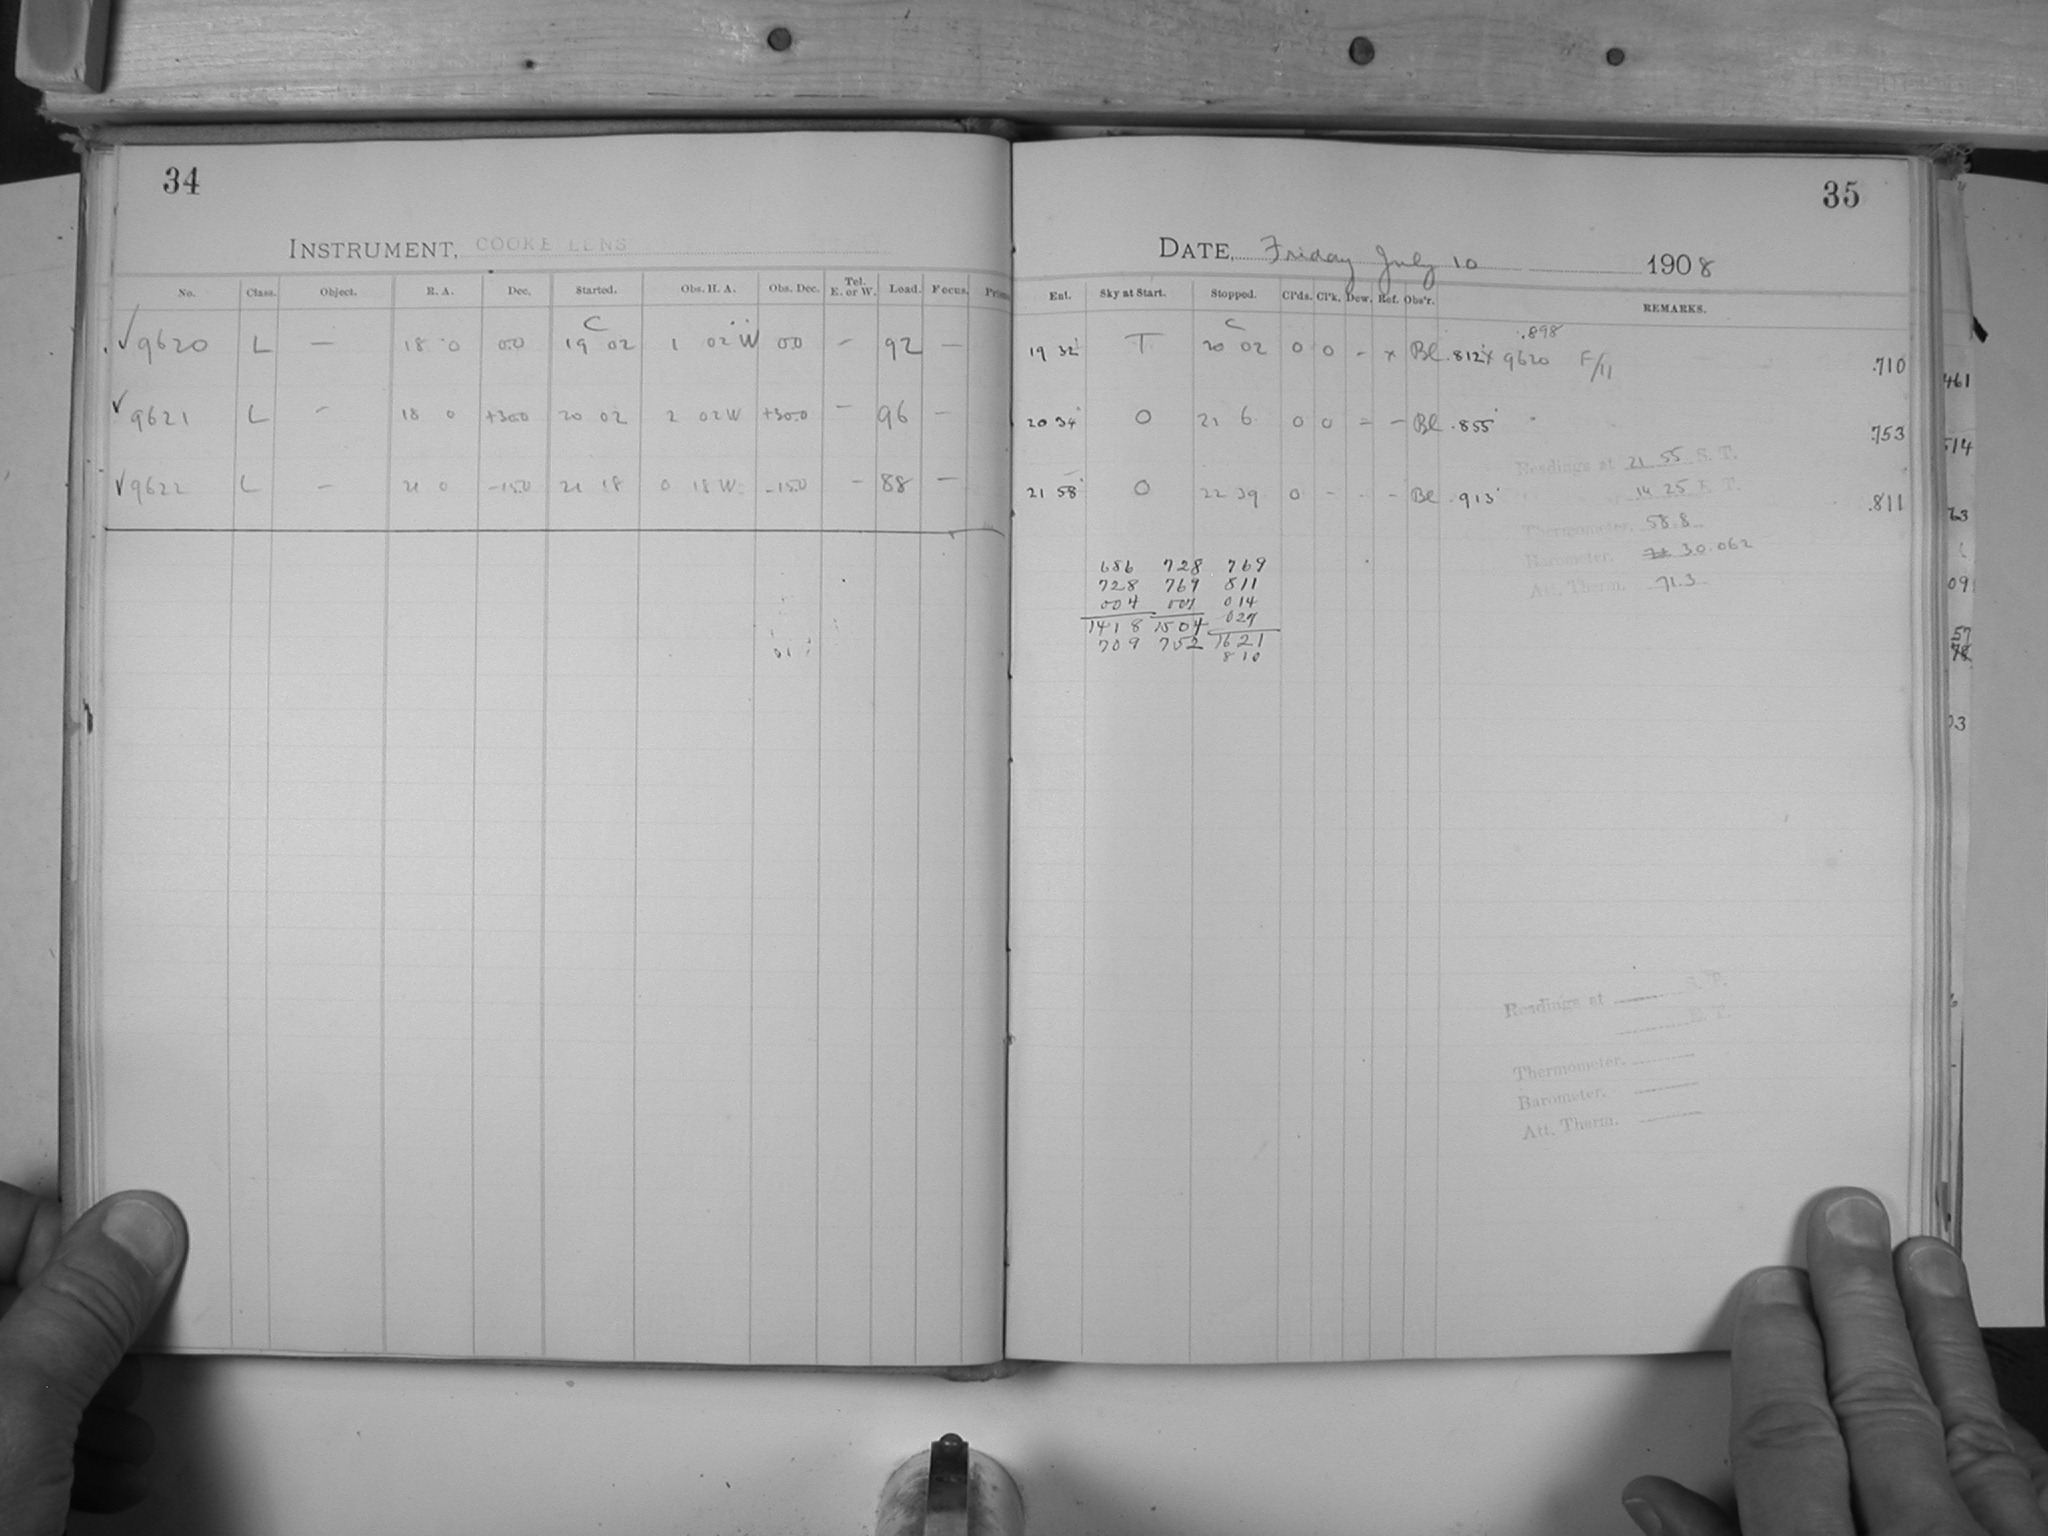 34
INSTRUMENT, COOKE LENS
No. Class. Object. R. A. Dec. Started. Obs. H. A. Obs. Dec. Tel. E. or W. Load. Focus. Prism
C
✓ 9620 L — 18 0 00 19 02 1 02 W 00 — 92 —
✓ 9621 L — 18 0 +30.0 20 02 2 02 W +30.0 — 96 —
✓ 9622 L — 21 0 -15.0 21 18 0 18 W -15.0 — 88 —
35
DATE, Friday July 10 1908
Ent. Sky at Start. Stopped. Cl'ds. Cl'k. Dew. Ref. Obs'r. REMARKS.
C .898
19 32 T 20 02 0 0 - x Bl .812 x 9620 F/11 .710
20 34 0 21 6 0 0 - - Bl .855 " .753
Readings at 21 55 S. T.
21 58 0 22 39 0 - - - Bl .913 14 25 E. T. .811
Thermometer, 58.8
Barometer. 30.062
Att. Therm. 71.3
686 728 769
728 769 811
004 007 014
1418 1504 027
709 752 1621
810
Readings at S. T.
E. T.
Thermometer.
Barometer.
Att. Therm.
461
514
63
09
57
78
03